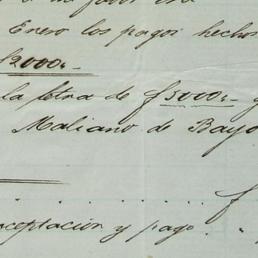 Enero los pagos hechos
$2000.-
la letra de $5000.-
Maliano de Bayo
aceptacion y pago.